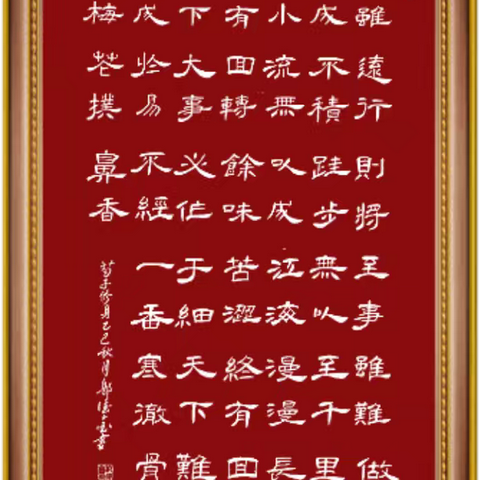 雖遠行則將至事雖難做
成不積跬步無以至千里
小流無以成江海漫漫長
有回轉餘味苦澀終有回
下大事必作于細天下難
成於易不經一番寒徹骨
梅花撲鼻香
荀子修身乙巳秋月郭書